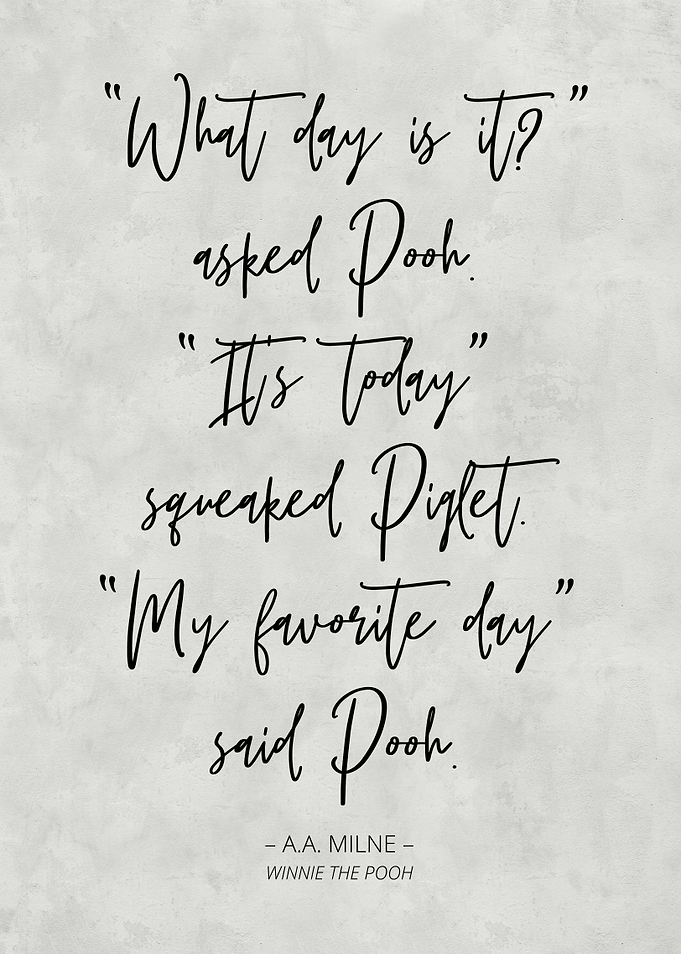 “What day is it?”
asked Pooh.
“It's today”
squeaked Piglet.
“My favorite day”
said Pooh.
– A.A. MILNE –
WINNIE THE POOH